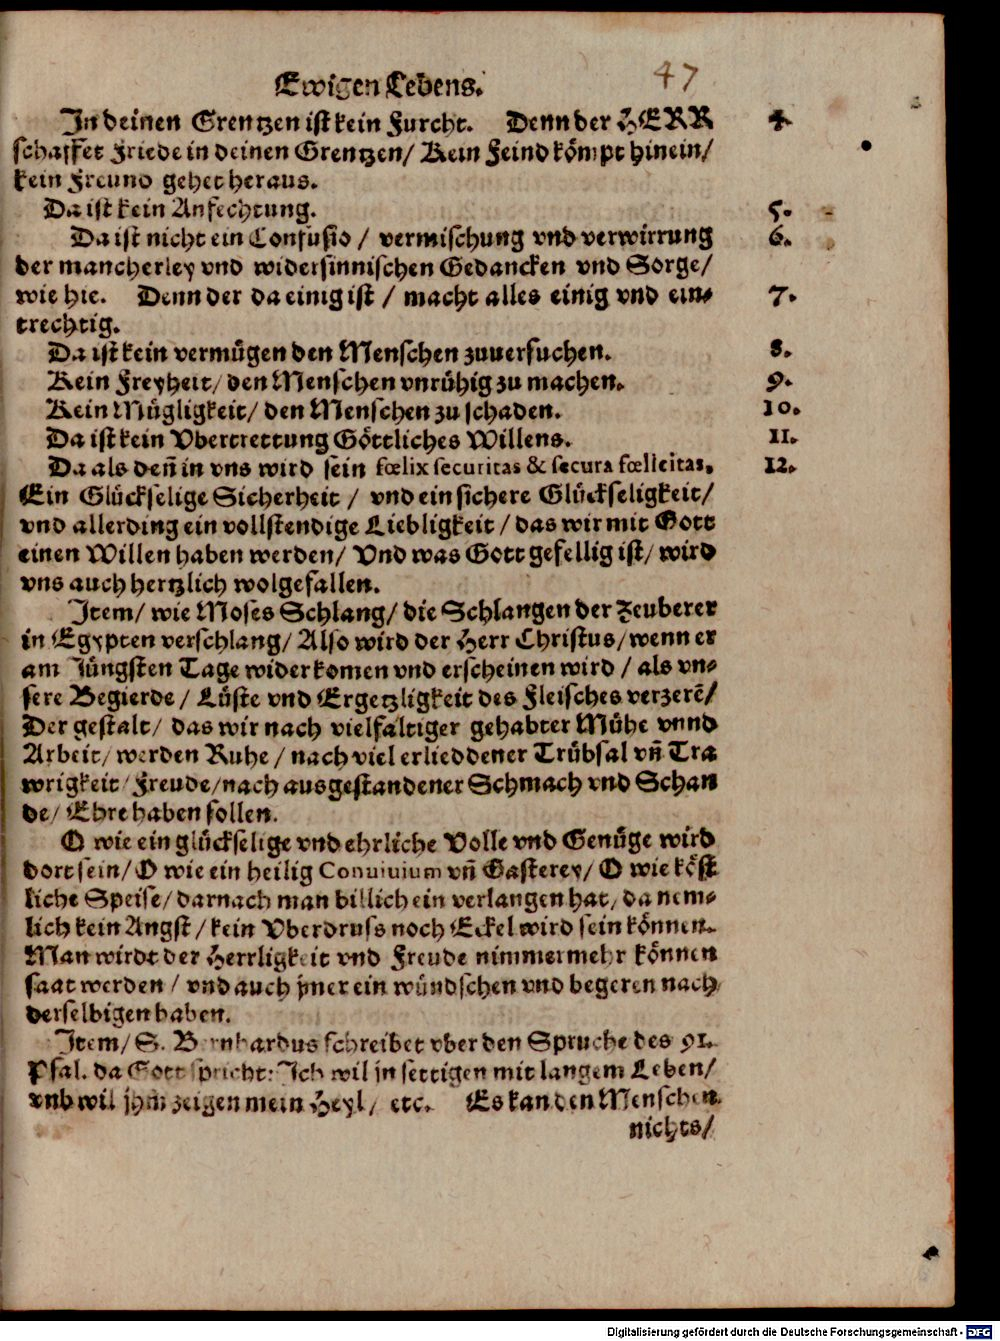 Ewigen Lebens. 47
In deinen Grentzen ist kein Furcht. Denn der HERR 4.
schaffet Friede in deinen Grentzen/ Kein Feind kömpt hinein/
kein Freund gehet heraus.
Da ist kein Anfechtung. 5.
Da ist nicht ein Confusio / vermischung vnd verwirrung 6.
der mancherley vnd widersinnischen Gedancken vnd Sorge/
wie hie. Denn der da einig ist / macht alles einig vnd ein- 7.
trechtig.
Da ist kein vermügen den Menschen zuuersuchen. 8.
Kein Freyheit/ den Menschen vnrühig zu machen. 9.
Kein Mügligkeit/ den Menschen zu schaden. 10.
Da ist kein Vbertrettung Göttliches Willens. 11.
Da als deñ in vns wird sein fœlix securitas & secura fœlicitas, 12.
Ein Glückselige Sicherheit / vnd ein sichere Glückseligkeit/
vnd allerding ein vollstendige Liebligkeit / das wir mit Gott
einen Willen haben werden/ Vnd was Gott gefellig ist/ wird
vns auch hertzlich wolgefallen.
Item/ wie Moses Schlang/ die Schlangen der Zeuberer
in Egypten verschlang/ Also wird der Herr Christus/ wenn er
am Jüngsten Tage widerkomen vnd erscheinen wird / als vn-
sere Begierde / Lüste vnd Ergetzligkeit des Fleisches verzerē/
Der gestalt/ das wir nach vielfaltiger gehabter Mühe vnnd
Arbeit/ werden Ruhe / nach viel erlieddener Trübsal vñ Tra
wrigkeit/ Freude/ nach ausgestandener Schmach vnd Schan
de/ Ehre haben sollen.
O wie ein glückselige vnd ehrliche Volle vnd Genüge wird
dort sein/ O wie ein heilig Conuiuium vñ Gasterey/ O wie köst
liche Speise/ darnach man billich ein verlangen hat/ da nem-
lich kein Angst / kein Vberdruss noch Eckel wird sein können.
Man wirdt der Herrligkeit vnd Freude nimmermehr können
saat werden / vnd auch jmer ein wündschen vnd begeren nach
derselbigen haben.
Item/ S. Bernhardus schreibet vber den Spruche des 91.
Psal. da Gott spricht: Ich wil jn settigen mit langem Leben/
vnb wil jhm zeigen mein Heyl/ etc. Es kan den Menschen
nichts/
Digitalisierung gefördert durch die Deutsche Forschungsgemeinschaft - DFG